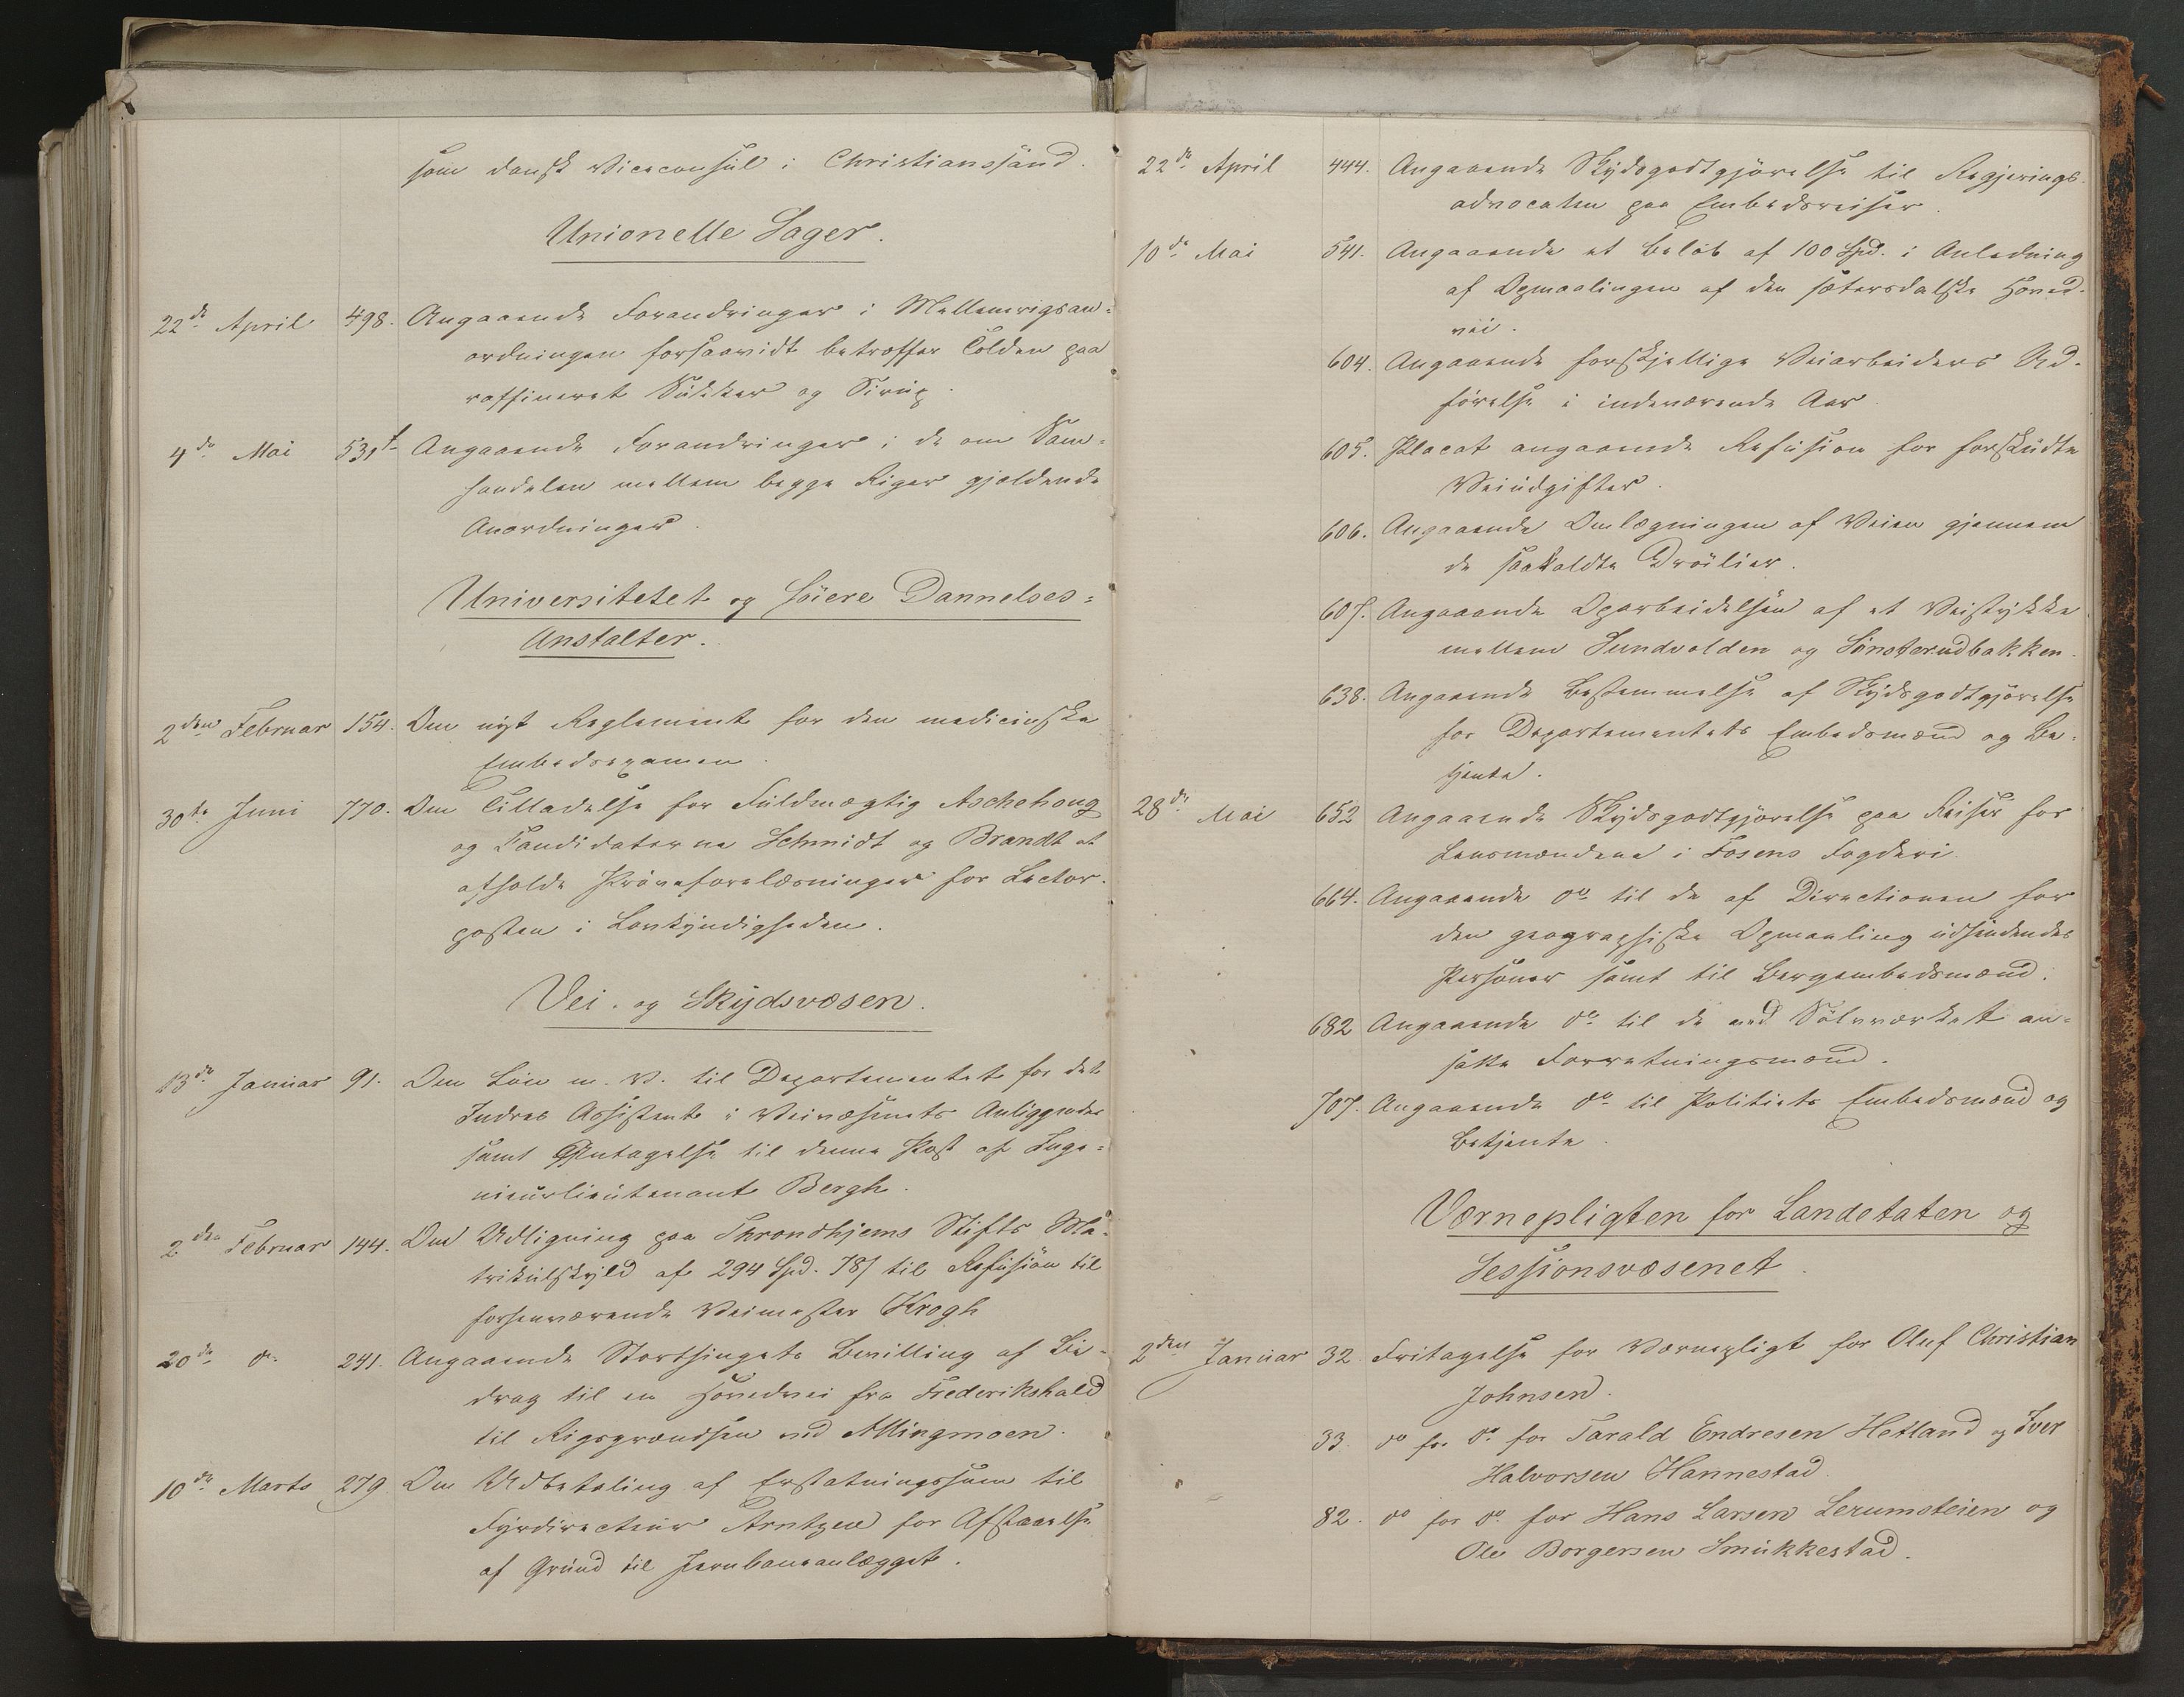 som dansk Viceconsul i Christianssand.
Unionelle Sager.
22de April 498. Angaaende Forandringer i Mellemrigsan-
ordningen forsaavidt betræffer Tolden paa
raffineret Sukker og Sirup.
4de Mai 531 Angaaende Forandringer i de om Sam-
handelen mellem begge Riger gjældende
Anordninger.
Universitetet og höiere Dannelses-
Anstalter.
2den Februar 154. Om nyt Reglement for den medicinske
Embedsexamen.
30te Juni 770. Om Tilladelse for Fuldmægtig Aschehoug
og Candidaterne Schmidt og Brandt at
afholde Pröveforelæsninger for Lector-
posten i Lovkyndigheden.
Vei- og Skydsvæsen.
13de Januar 91. Om Lön m. V. til Departementet for det
Indres Assistent i Veivæsenets Anliggender
samt Antagelse til denne Post af Inge-
nieurlieutenant Bergh.
2den Februar 144. Om Udligning paa Throndhjems Stifts Ma-
trikulskyld af 294 Spd. 78 f til Refusion til
forhenværende Veimester Krogh
20de do 241. Angaaende Storthingets Bevilling af Bi-
drag til en Hovedvei fra Frederikshald
til Rigsgrændsen ved Allingmoen.
10de Marts 279 Om Udbetaling af Erstatningssum til
Fyrdirecteur Arntzen for Afstaaelse
af Grund til Jernbaneanlægget.
22de April 444. Angaaende Skydsgodtgjörelse til Regjerings-
advocaten paa Embedsreiser.
10de Mai 541. Angaaende et Belöb af 100 Spd. i Anledning
af Opmaalingen af den sætersdalske Hoved-
vei.
604. Angaaende forskjellige Veiarbeiders Ud-
förelse i indeværende Aar
605. Placat angaaende Refusion for forskudte
Veiudgifter.
606. Angaaende Omlægningen af Veien gjennem
de saakaldte Dröilier.
607. Angaaende Oparbeidelsen af et Veistykke
mellem Sundvolden og Sönsterudbakken.
638. Angaaende Bestemmelse af Skydsgodtgjörelse
for Departementets Embedsmænd og Be-
tjente.
28de Mai 652 Angaaende Skydsgodtgjörelse paa Reiser for
Lensmændene i Fosens Fogderi.
664. Angaaende do til de af Directionen for
den geographiske Opmaaling udsendende
Personer samt til Bergembedsmænd.
682 Angaaende do til de ved Sölvværket an-
satte Forretningsmænd.
707. Angaaende do til Politiets Embedsmænd og
Betjente.
Værnepligten for Landetaten og
Sessionsvæsenet.
2den Januar 32 Fritagelse for Værnepligt for Oluf Christian
Johnsen.
33. do for do for Tarald Endresen Hetland og Iver
Halvorsen Hannestad
82. do for do for Hans Larsen Lerumsteien og
Ole Borgersen Smukkestad.